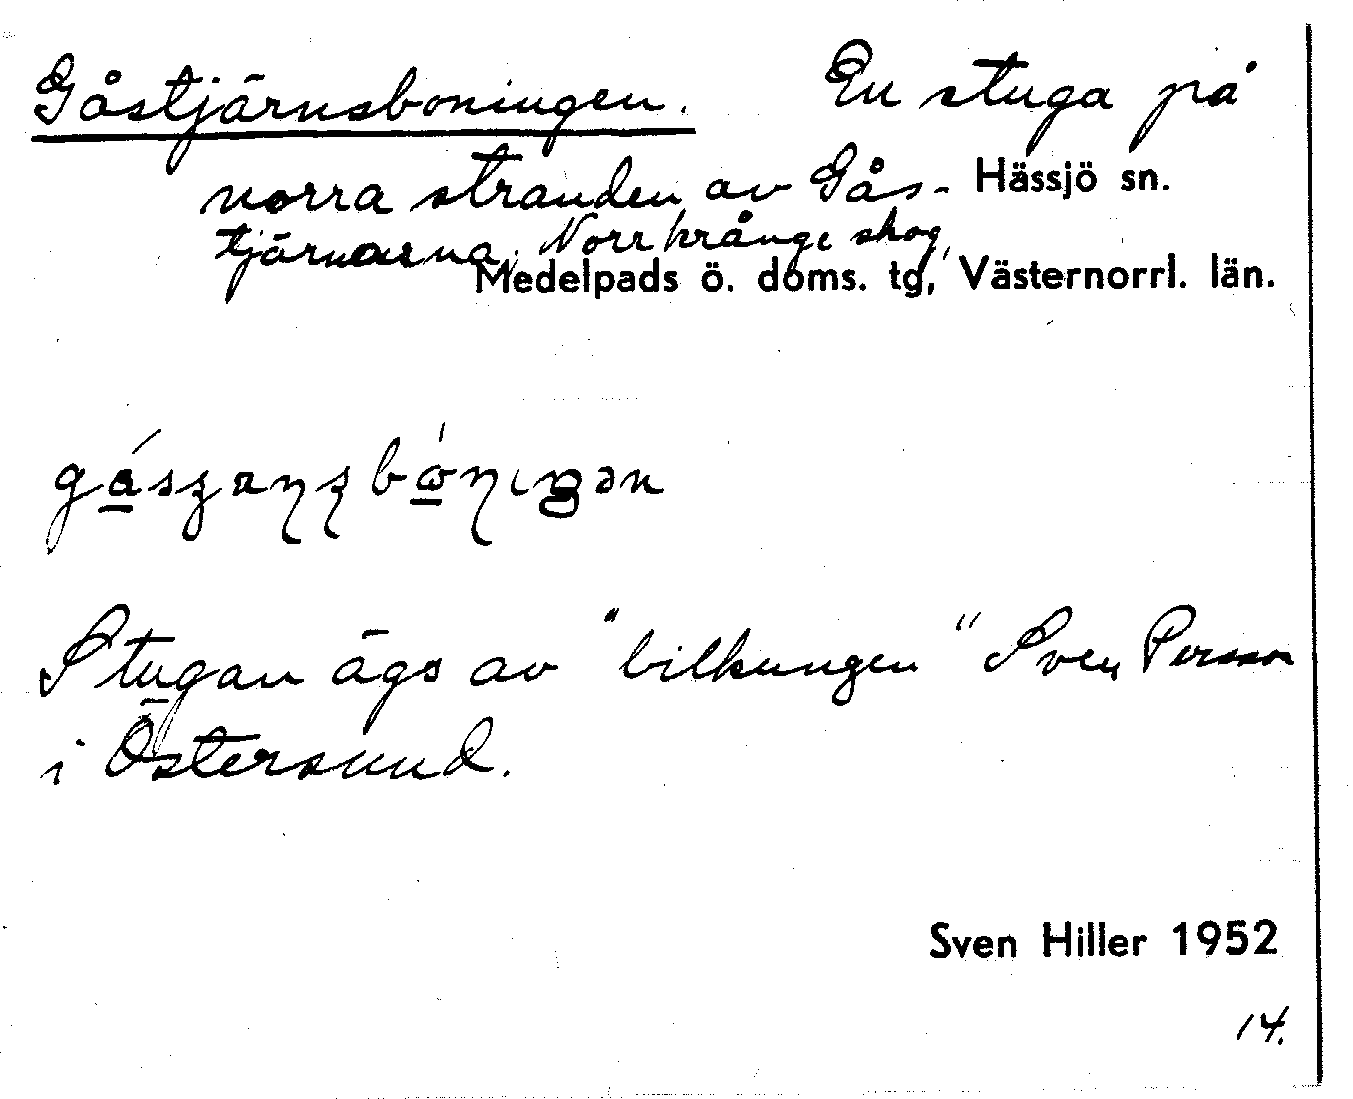 Gåstjärnsboningen. En stuga på
norra stranden av Gås- Hässjö sn.
tjärnarna, Norrkrånge skog,
Medelpads ö. doms. tg, Västernorrl. län.
Stugan ägs av "bilkungen" Sven Persson
i Östersund.
Sven Hiller 1952
14.